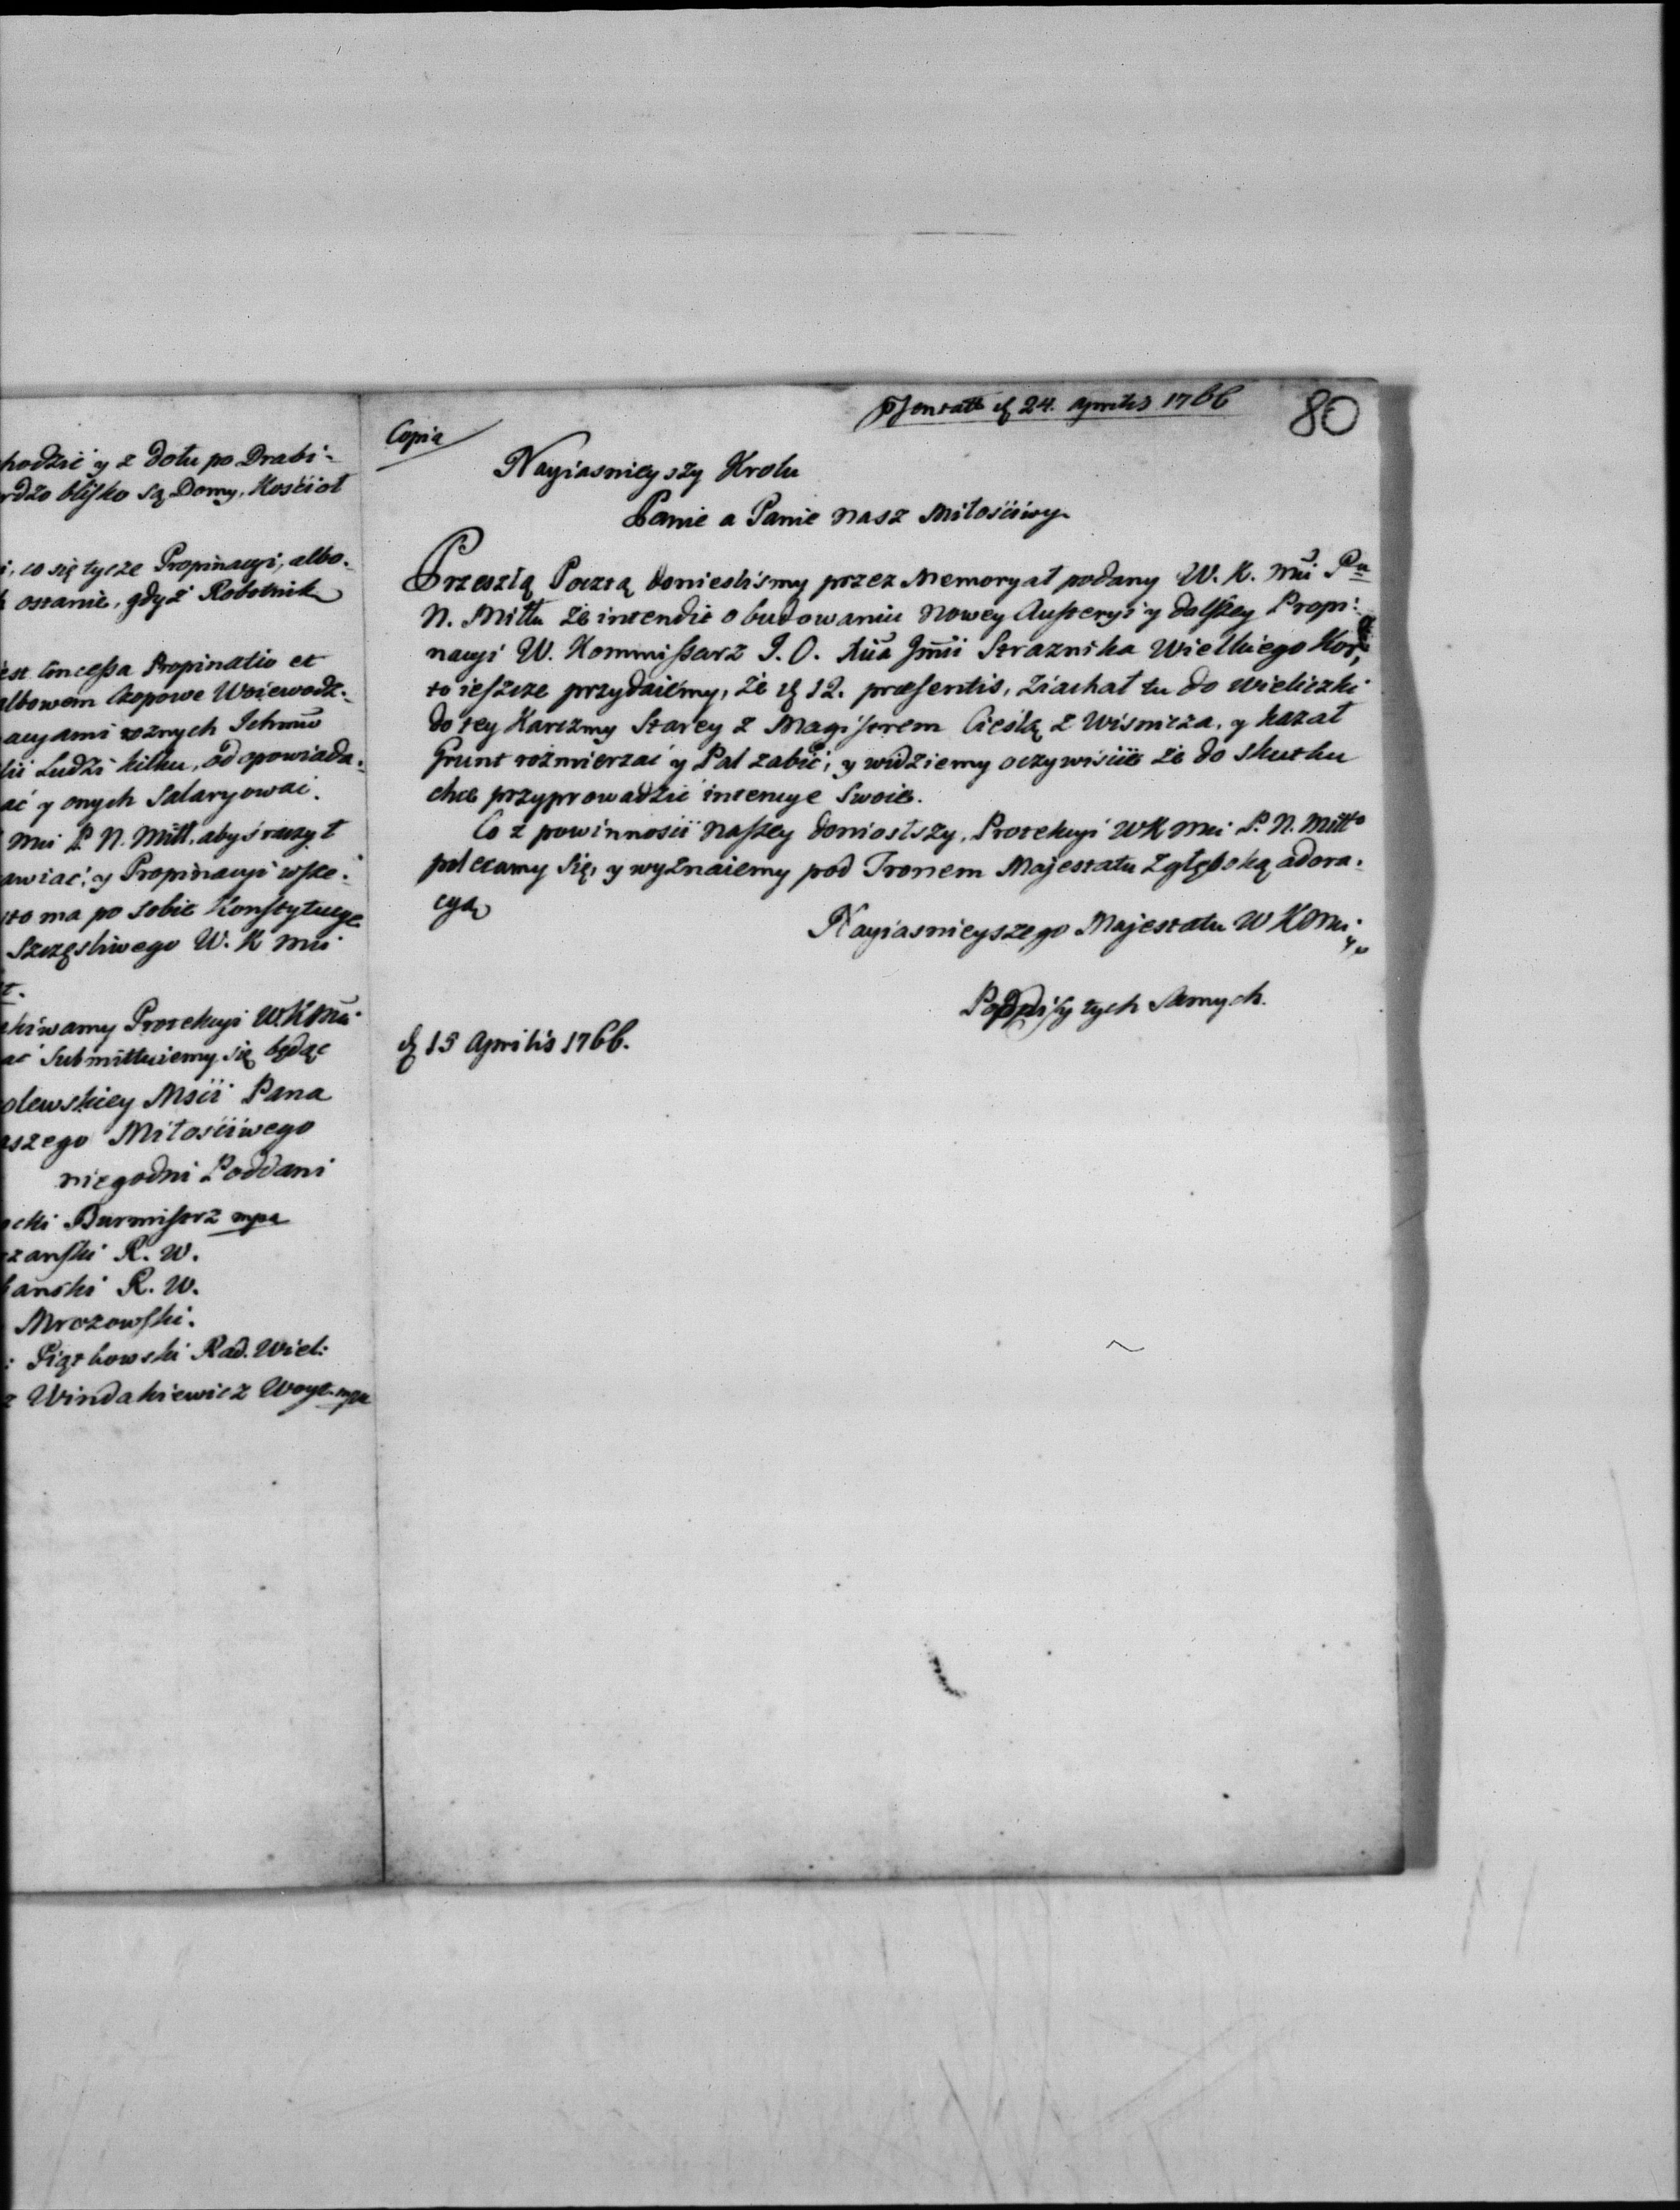 hodzić y z dołu po Drabi-
rdzo blisko są Domy, Kościoł
i, co się tycze Propinacyi, albo-
ostanie, gdyż Robotnik
iest Concessa Propinatio et
albowem Czopowe Woiewodz-
acyami roznych Ichmciw
Ludzi kilku, odopowiada-
ać y onych Salaryować.
Mci P. N. Mił. abyś raczył
awiać, y Propinacyi wsze-
to ma po sobie Konstytucye
Szczęśliwego W. K Mci
t.
kiwamy Protekcyi W.K Mci
ać Submittuiemy się będąc
olewskiey Mści Pana
aszego Miłościwego
niegodni Poddani
ocki Burmistrz mpa
zanski R. W.
banski R. W.
Mrozowski.
: Piątkowski Rad. Wiel:
z Windakiewicz Woyt. mpa
80
24. Aprilis 1766
Copia
Nayiasnieyszy Krolu
Panie a Panie nasz Miłościwy
Przeszłą Pocztą donieslismy przez Memoryał podany W. K. Mci Pu
N. Miłłu że intendit o budowaniu nowey Austeryi y dalszey Propi:
nacyi W. Kommissarz J. O. Xcia Jmci Straznika Wielkiego Kor,
to ieszcze przydaiemy, że d 12. præsentis, ziachał tu do Wieliczki
do tey Karczmy Starey z Magistrem Cieślą z Wisnicza, y kazał
Grunt rozmierzać y Pal zabić, y widziemy oczywiście że do skutku
chce przyprowadzić intencye swoie.
Co z powinności naszey doniosłszy, Protekcyi WK Mci P. N. Miłło
polecamy się, y wyznaiemy pod Tronem Majestatu z głęboką adora-
cyą
Nayiasnieyszego Majestatu W K Mci
Podpisy tych samych.
d 15 Aprilis 1766.